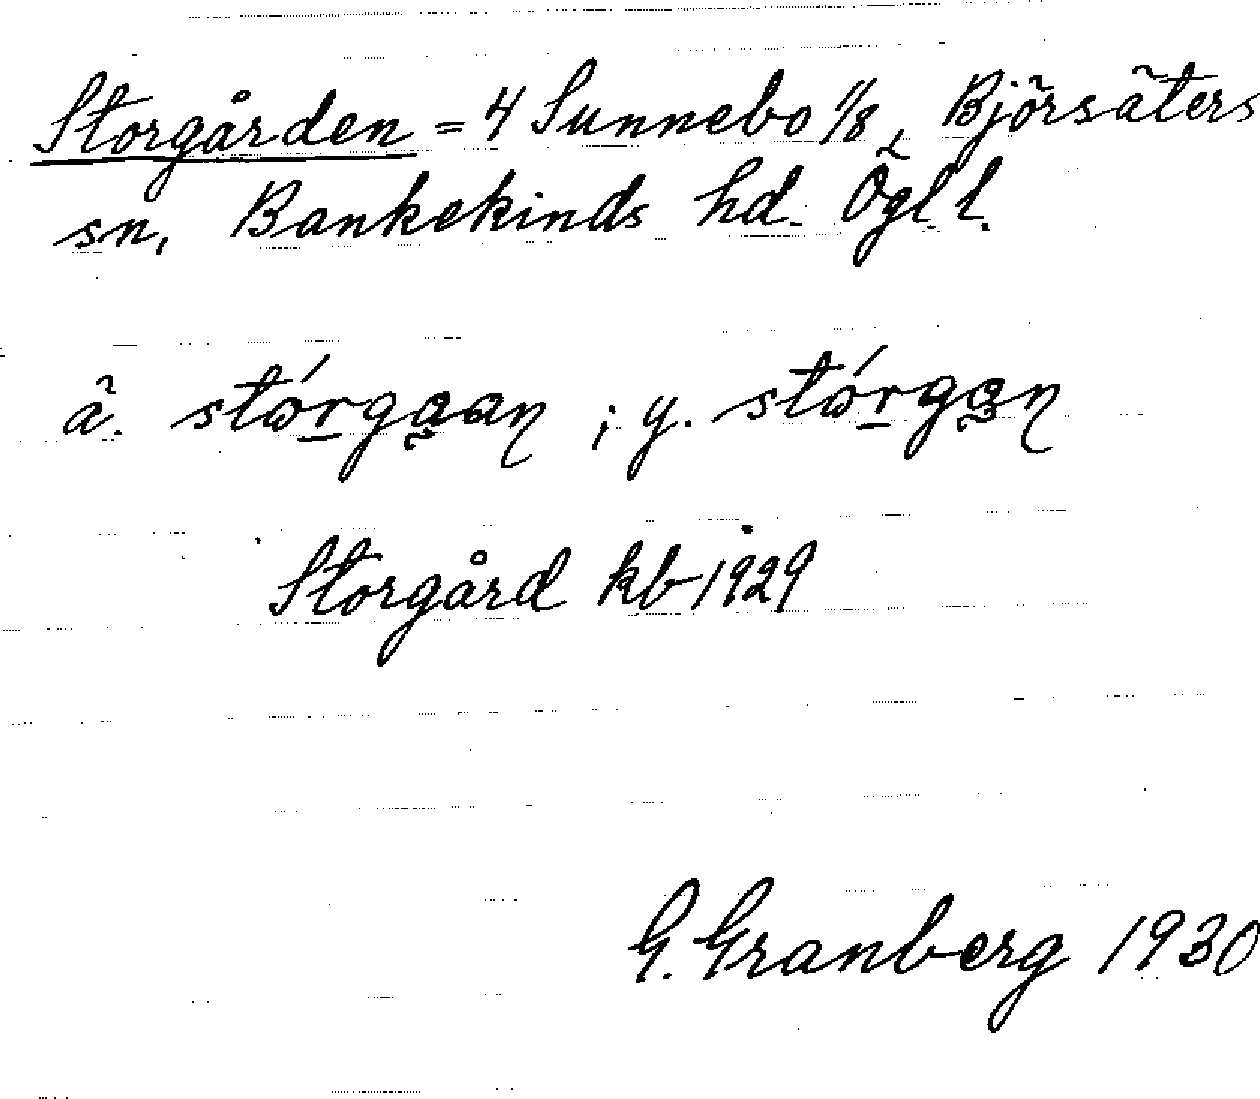 Storgården = 4 Sunnebo 1/8, Björsäters
sn, Bankekinds hd. Ögl l.
ä. stórgaan ; y. stórgan
Storgård kb 1929
G. Granberg 1930